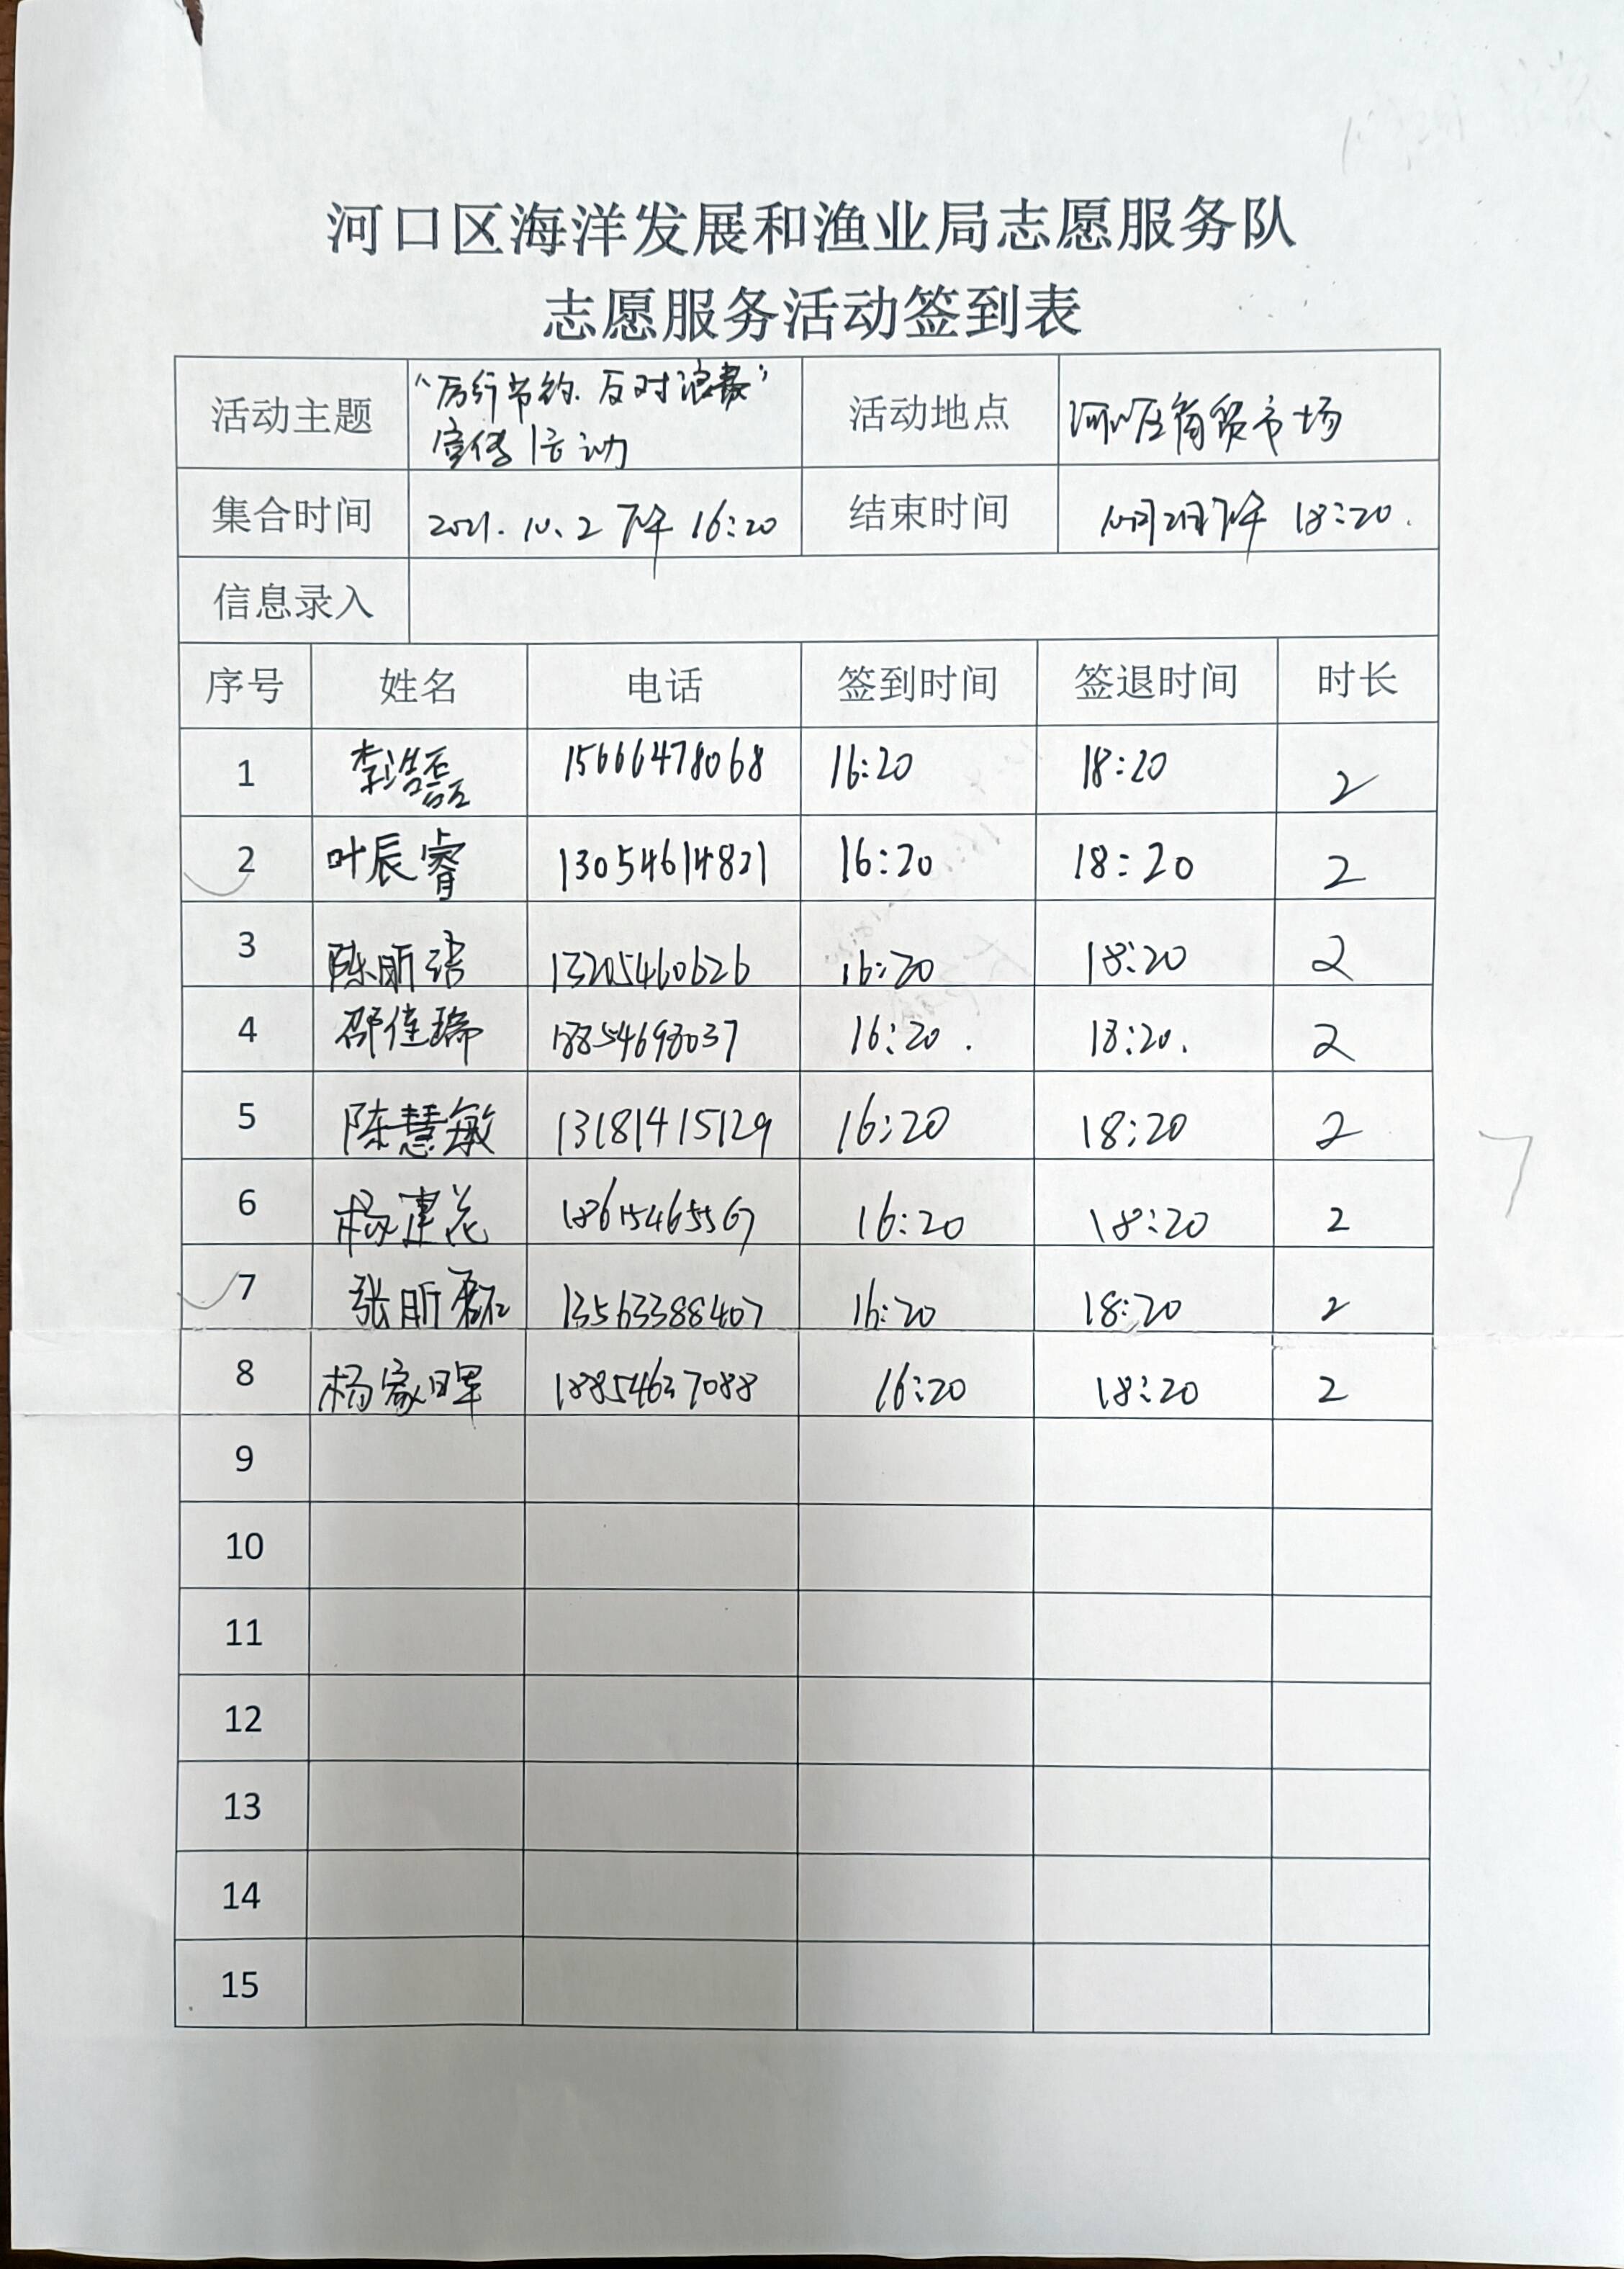 河口区海洋发展和渔业局志愿服务队
志愿服务活动签到表
活动主题 “厉行节约.反对浪费” 活动地点 河口区商贸市场
宣传活动
集合时间 2021.10.2 下午 16:20 结束时间 10月2日下午 18:20.
信息录入
序号 姓名 电话 签到时间 签退时间 时长
1 李浩磊 15666478068 16:20 18:20 2
2 叶辰睿 13054614821 16:20 18:20 2
3 陈昕 13205460626 16:20 18:20 2
4 邵佳瑞 18854698037 16:20. 18:20. 2
5 陈慧敏 13181415129 16:20 18:20 2
6 杨建花 18615465567 16:20 18:20 2
7 张昕 13563388407 16:20 18:20 2
8 杨家晖 18854637088 16:20 18:20 2
9
10
11
12
13
14
15